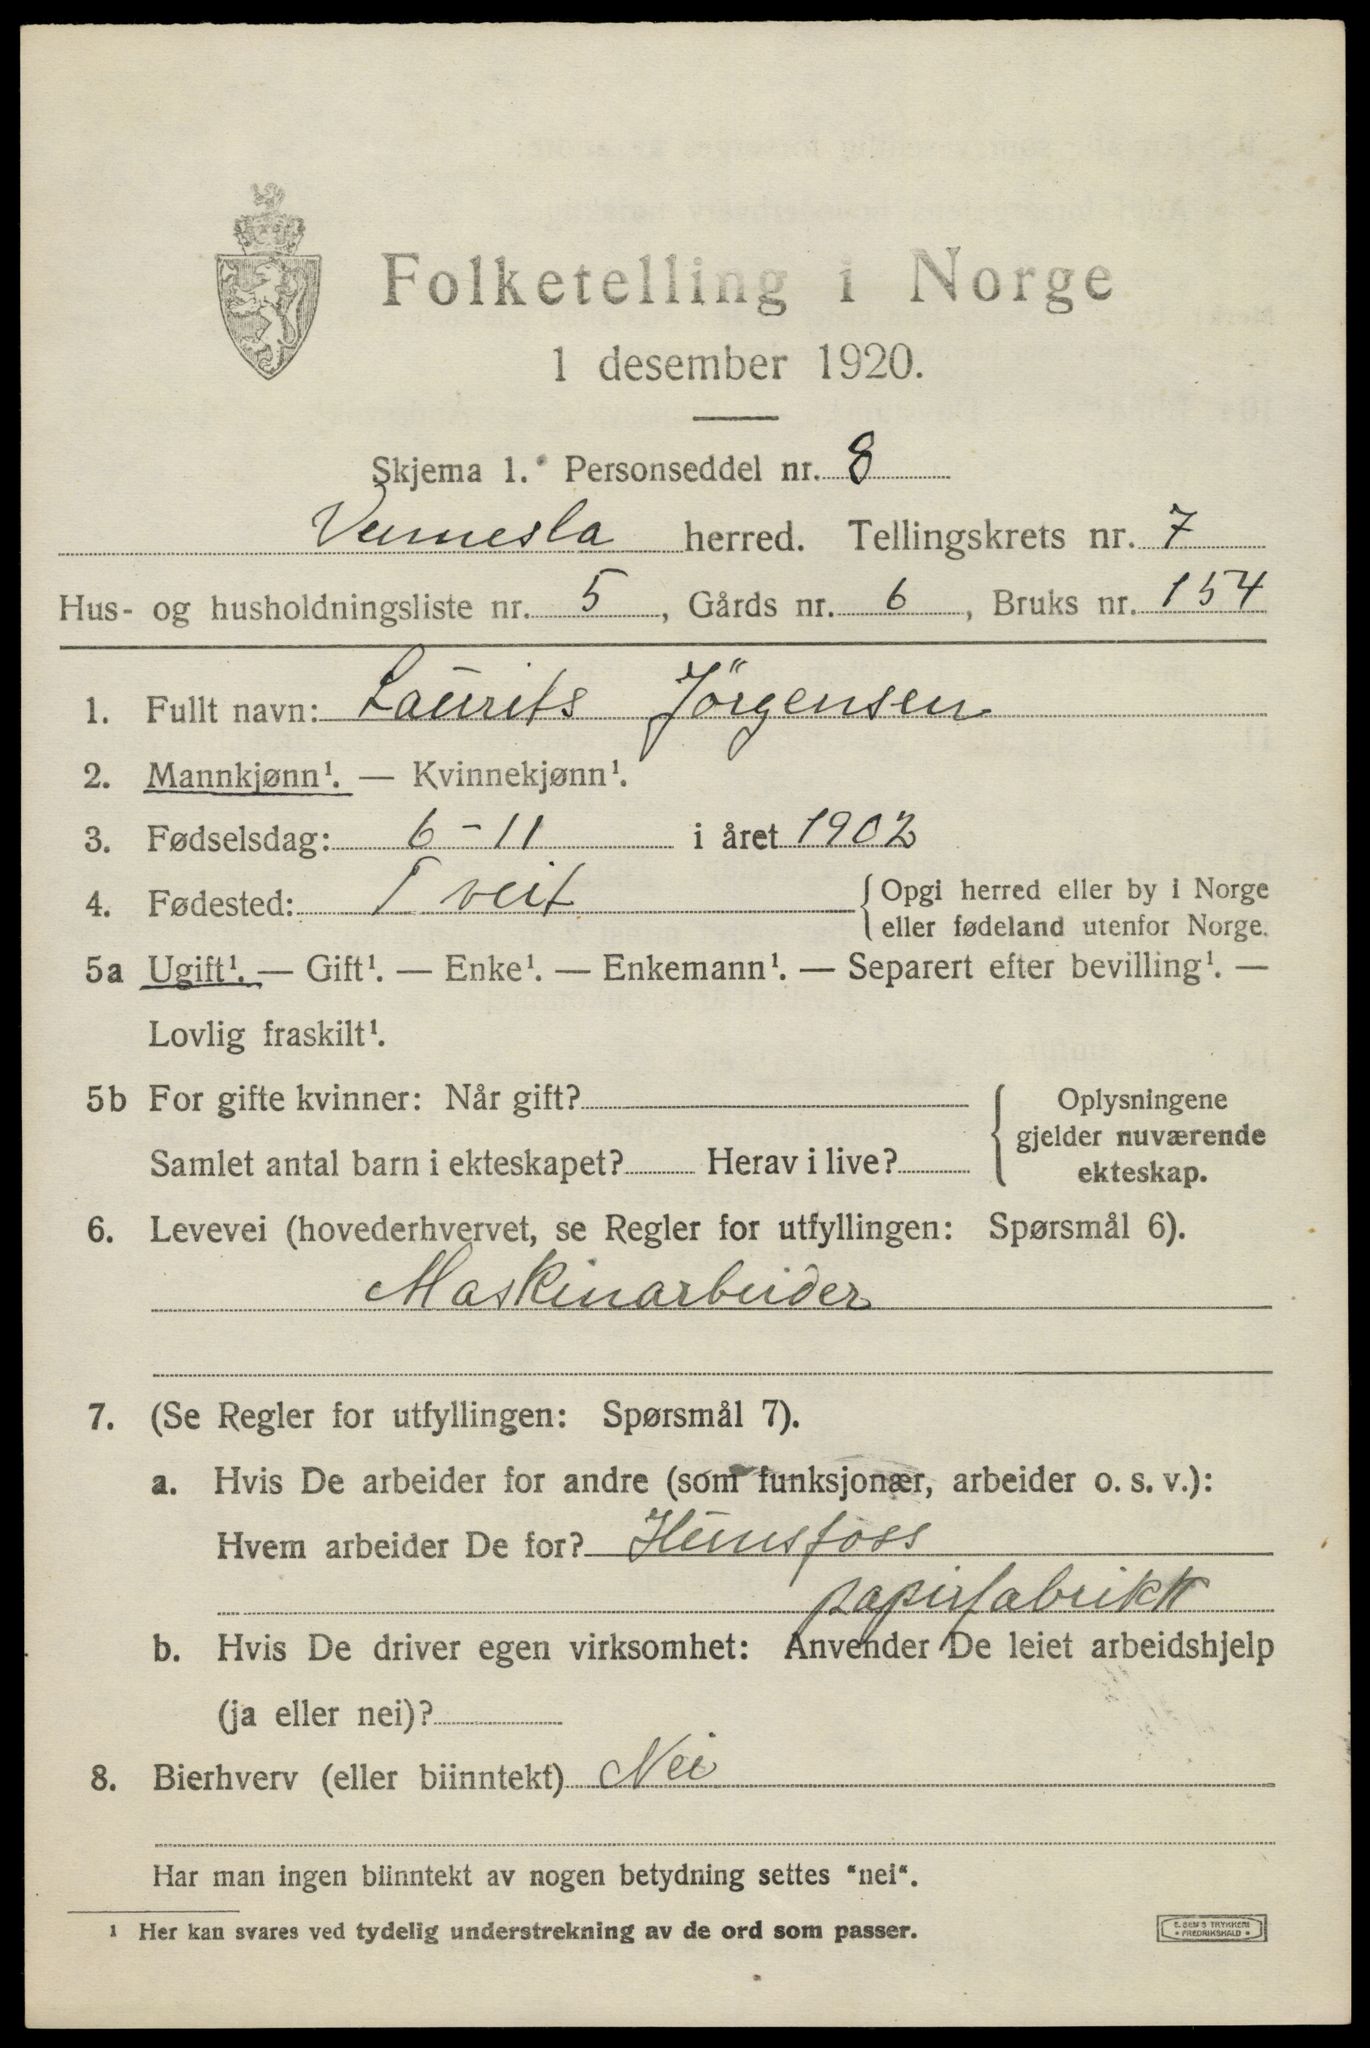 Folketelling i Norge
1 desember 1920.
Skjema 1. Personseddel nr. 8
Vennesla herred. Tellingskrets nr. 7
Hus- og husholdningsliste nr. 5, Gårds nr. 6, Bruks nr. 154
1. Fullt navn: Laurits Jörgensen
2. Mannkjønn¹. — Kvinnekjønn¹.
3. Fødselsdag: 6-11 i året 1902
4. Fødested: Tveit { Opgi herred eller by i Norge
eller fødeland utenfor Norge.
5a Ugift¹. — Gift¹. — Enke¹. — Enkemann¹. — Separert efter bevilling¹. —
Lovlig fraskilt¹.
5b For gifte kvinner: Når gift? { Oplysningene
gjelder nuværende
Samlet antal barn i ekteskapet? Herav i live? ekteskap.
6. Levevei (hovederhvervet, se Regler for utfyllingen: Spørsmål 6).
Maskinarbeider
7. (Se Regler for utfyllingen: Spørsmål 7).
a. Hvis De arbeider for andre (som funksjonær, arbeider o. s. v.):
Hvem arbeider De for? Hunsfoss
papirfabrikk
b. Hvis De driver egen virksomhet: Anvender De leiet arbeidshjelp
(ja eller nei)?
8. Bierhverv (eller biinntekt) Nei
Har man ingen biinntekt av nogen betydning settes "nei".
¹ Her kan svares ved tydelig understrekning av de ord som passer.
E. SEM'S TRYKKERI
• FREDRIKSHALD •